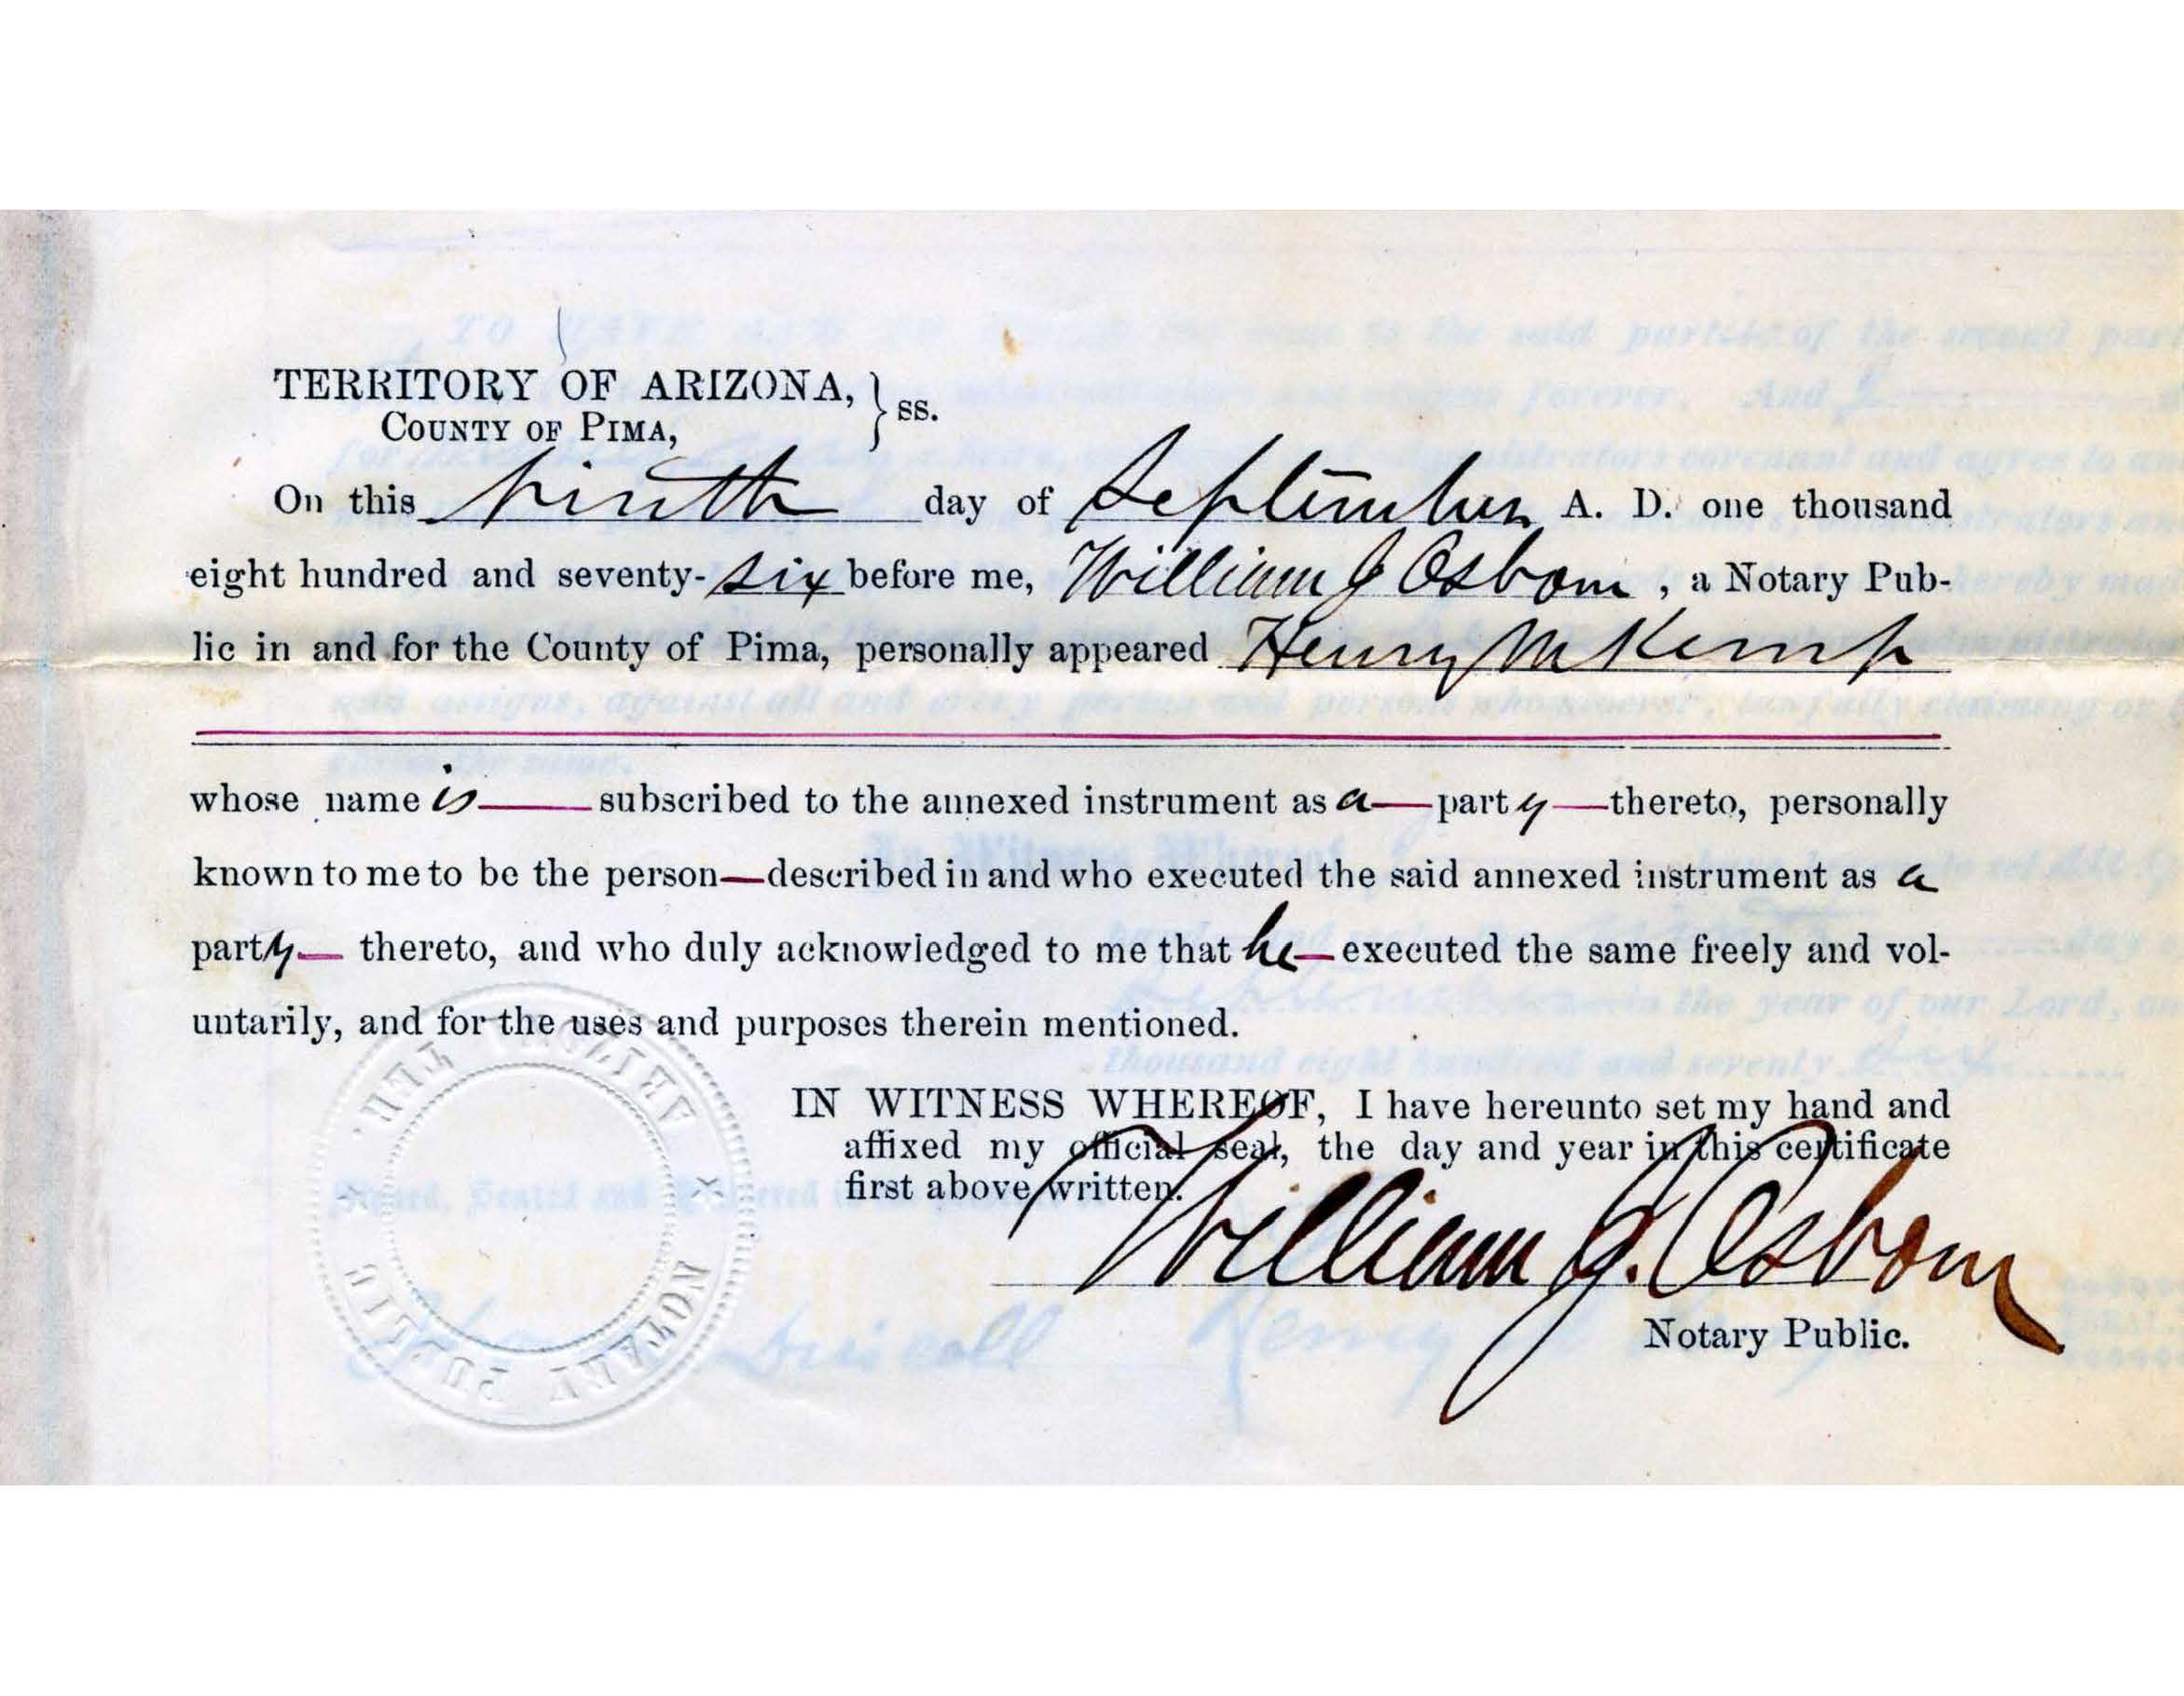 TERRITORY OF ARIZONA, } ss.
COUNTY OF PIMA,
On this ninth day of September A. D. one thousand
eight hundred and seventy-six before me, William J Osborn, a Notary Pub-
lic in and for the County of Pima, personally appeared Henry M Kemp
whose name is subscribed to the annexed instrument as a party thereto, personally
known to me to be the person described in and who executed the said annexed instrument as a
party thereto, and who duly acknowledged to me that he executed the same freely and vol-
untarily, and for the uses and purposes therein mentioned.
IN WITNESS WHEREOF, I have hereunto set my hand and
affixed my official seal, the day and year in this certificate
first above written.
William J. Osborn
Notary Public.
ARIZONA TER.
NOTARY PUBLIC